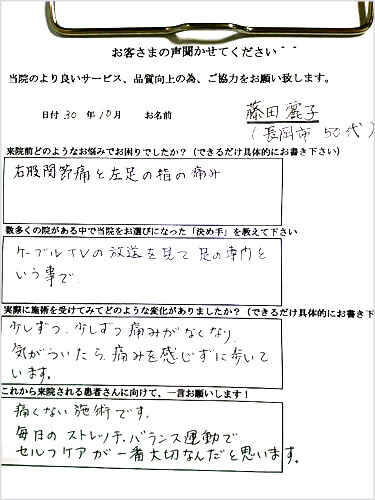 お客さまの声聞かせてください＾＾
当院のより良いサービス、品質向上の為、ご協力をお願い致します。
日付 30 年 10 月　お名前　藤田 麗子
(長岡市 50代)
来院前どのようなお悩みでお困りでしたか？（できるだけ具体的にお書き下さい）
右股関節痛と左足の指の痛み
数多くの院がある中で当院をお選びになった「決め手」を教えて下さい
ケーブルTVの放送を見て足の専門と
いう事で.
実際に施術を受けてみてどのような変化がありましたか？（できるだけ具体的にお書き下
少しずつ、少しずつ痛みがなくなり、
気がついたら、痛みを感じずに歩いて
います。
これから来院される患者さんに向けて、一言お願いします！
痛くない施術です。
毎日のストレッチ、バランス運動で
セルフケアが一番大切なんだと思います。